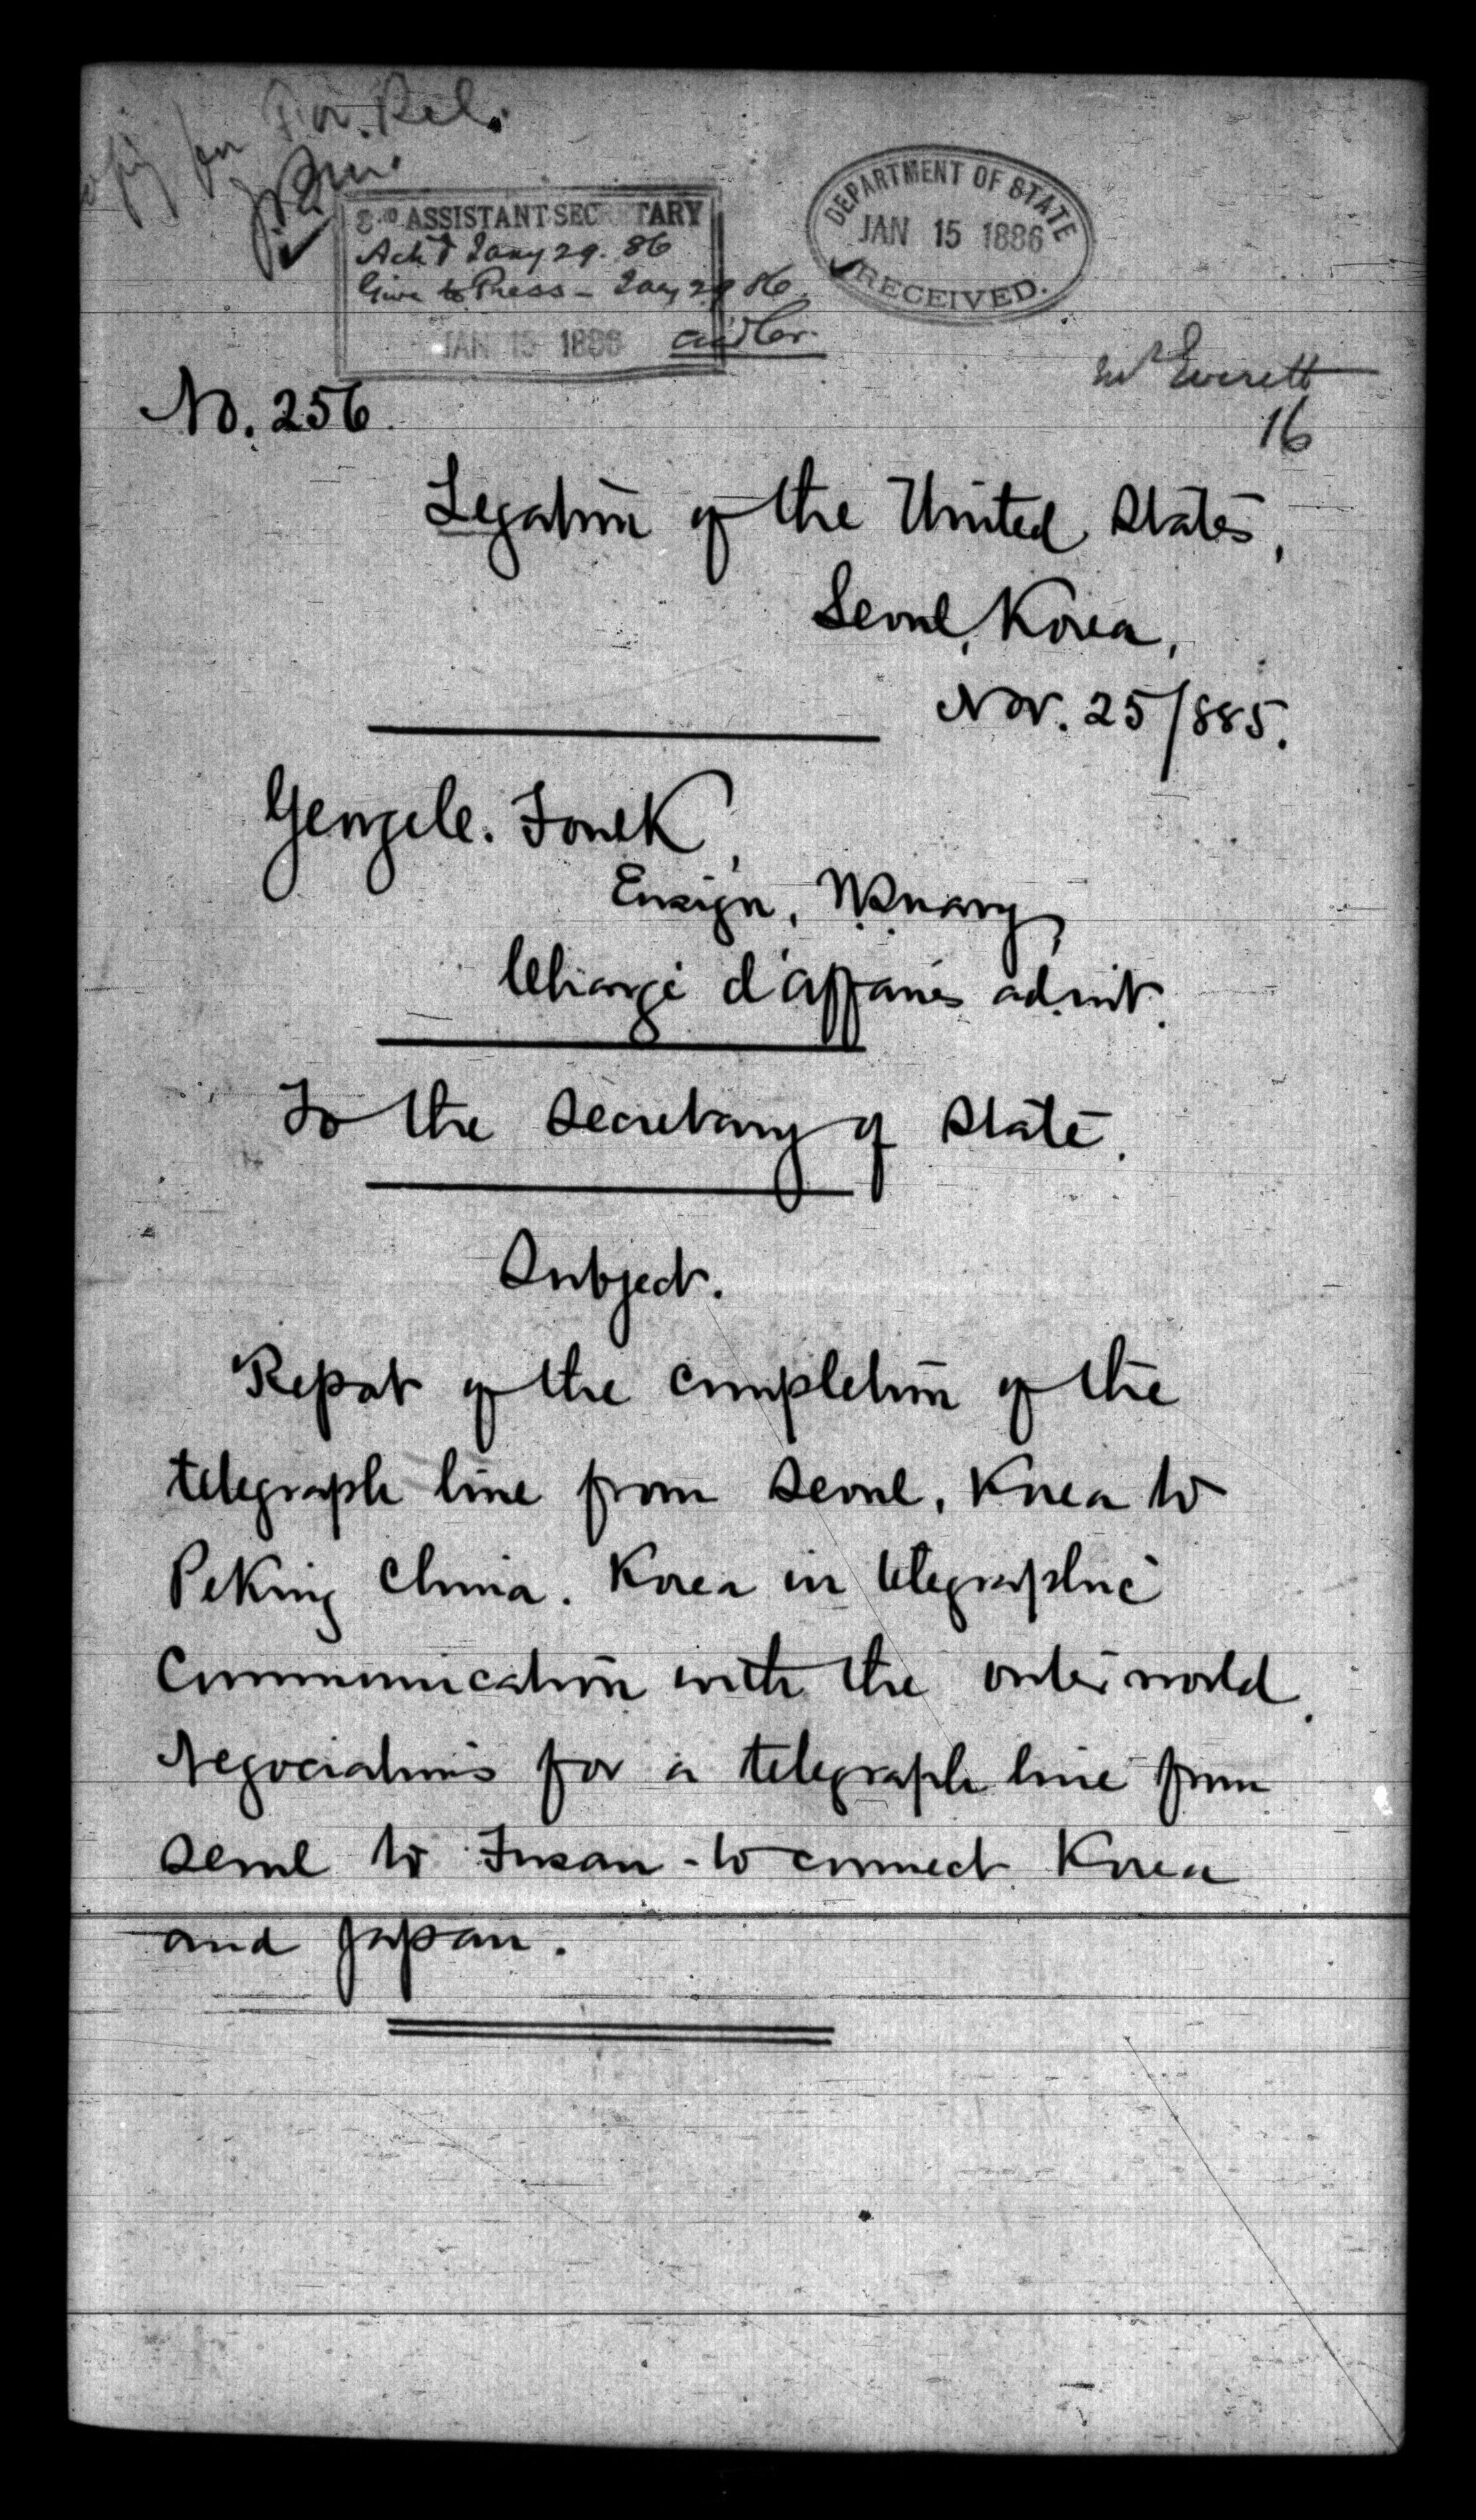 Copy for For. Rel.
2ND ASSISTANT SECRETARY
Ack'd Jany 29. 86
Give to Press - Jany 29 86
JAN 15 1886
DEPARTMENT OF STATE
JAN 15 1886
RECEIVED.
Mr Everett
16
No. 256.
Legation of the United States,
Seoul, Korea,
Nov. 25/885.
George C. Foulk,
Ensign, U.S. Navy,
Chargé d'affaires ad. int.
To the Secretary of State.
Subject.
Report of the completion of the
telegraph line from Seoul, Korea to
Peking China. Korea in telegraphic
Communication with the outer world.
Negociations for a telegraph line from
Seoul to Fusan - to connect Korea
and Japan.